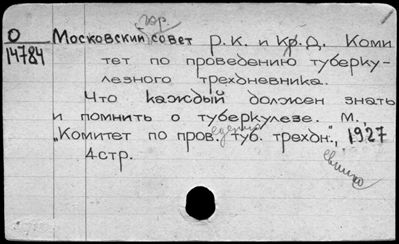 гор.
О Московский совет Р.К. и Кр.Д. Коми
14784 тет по проведению туберку-
лезного трехдневника.
Что каждый должен знать
и помнить о туберкулезе. М.,
"Комитет по пров. туб. трехдн.", 1927
4стр.